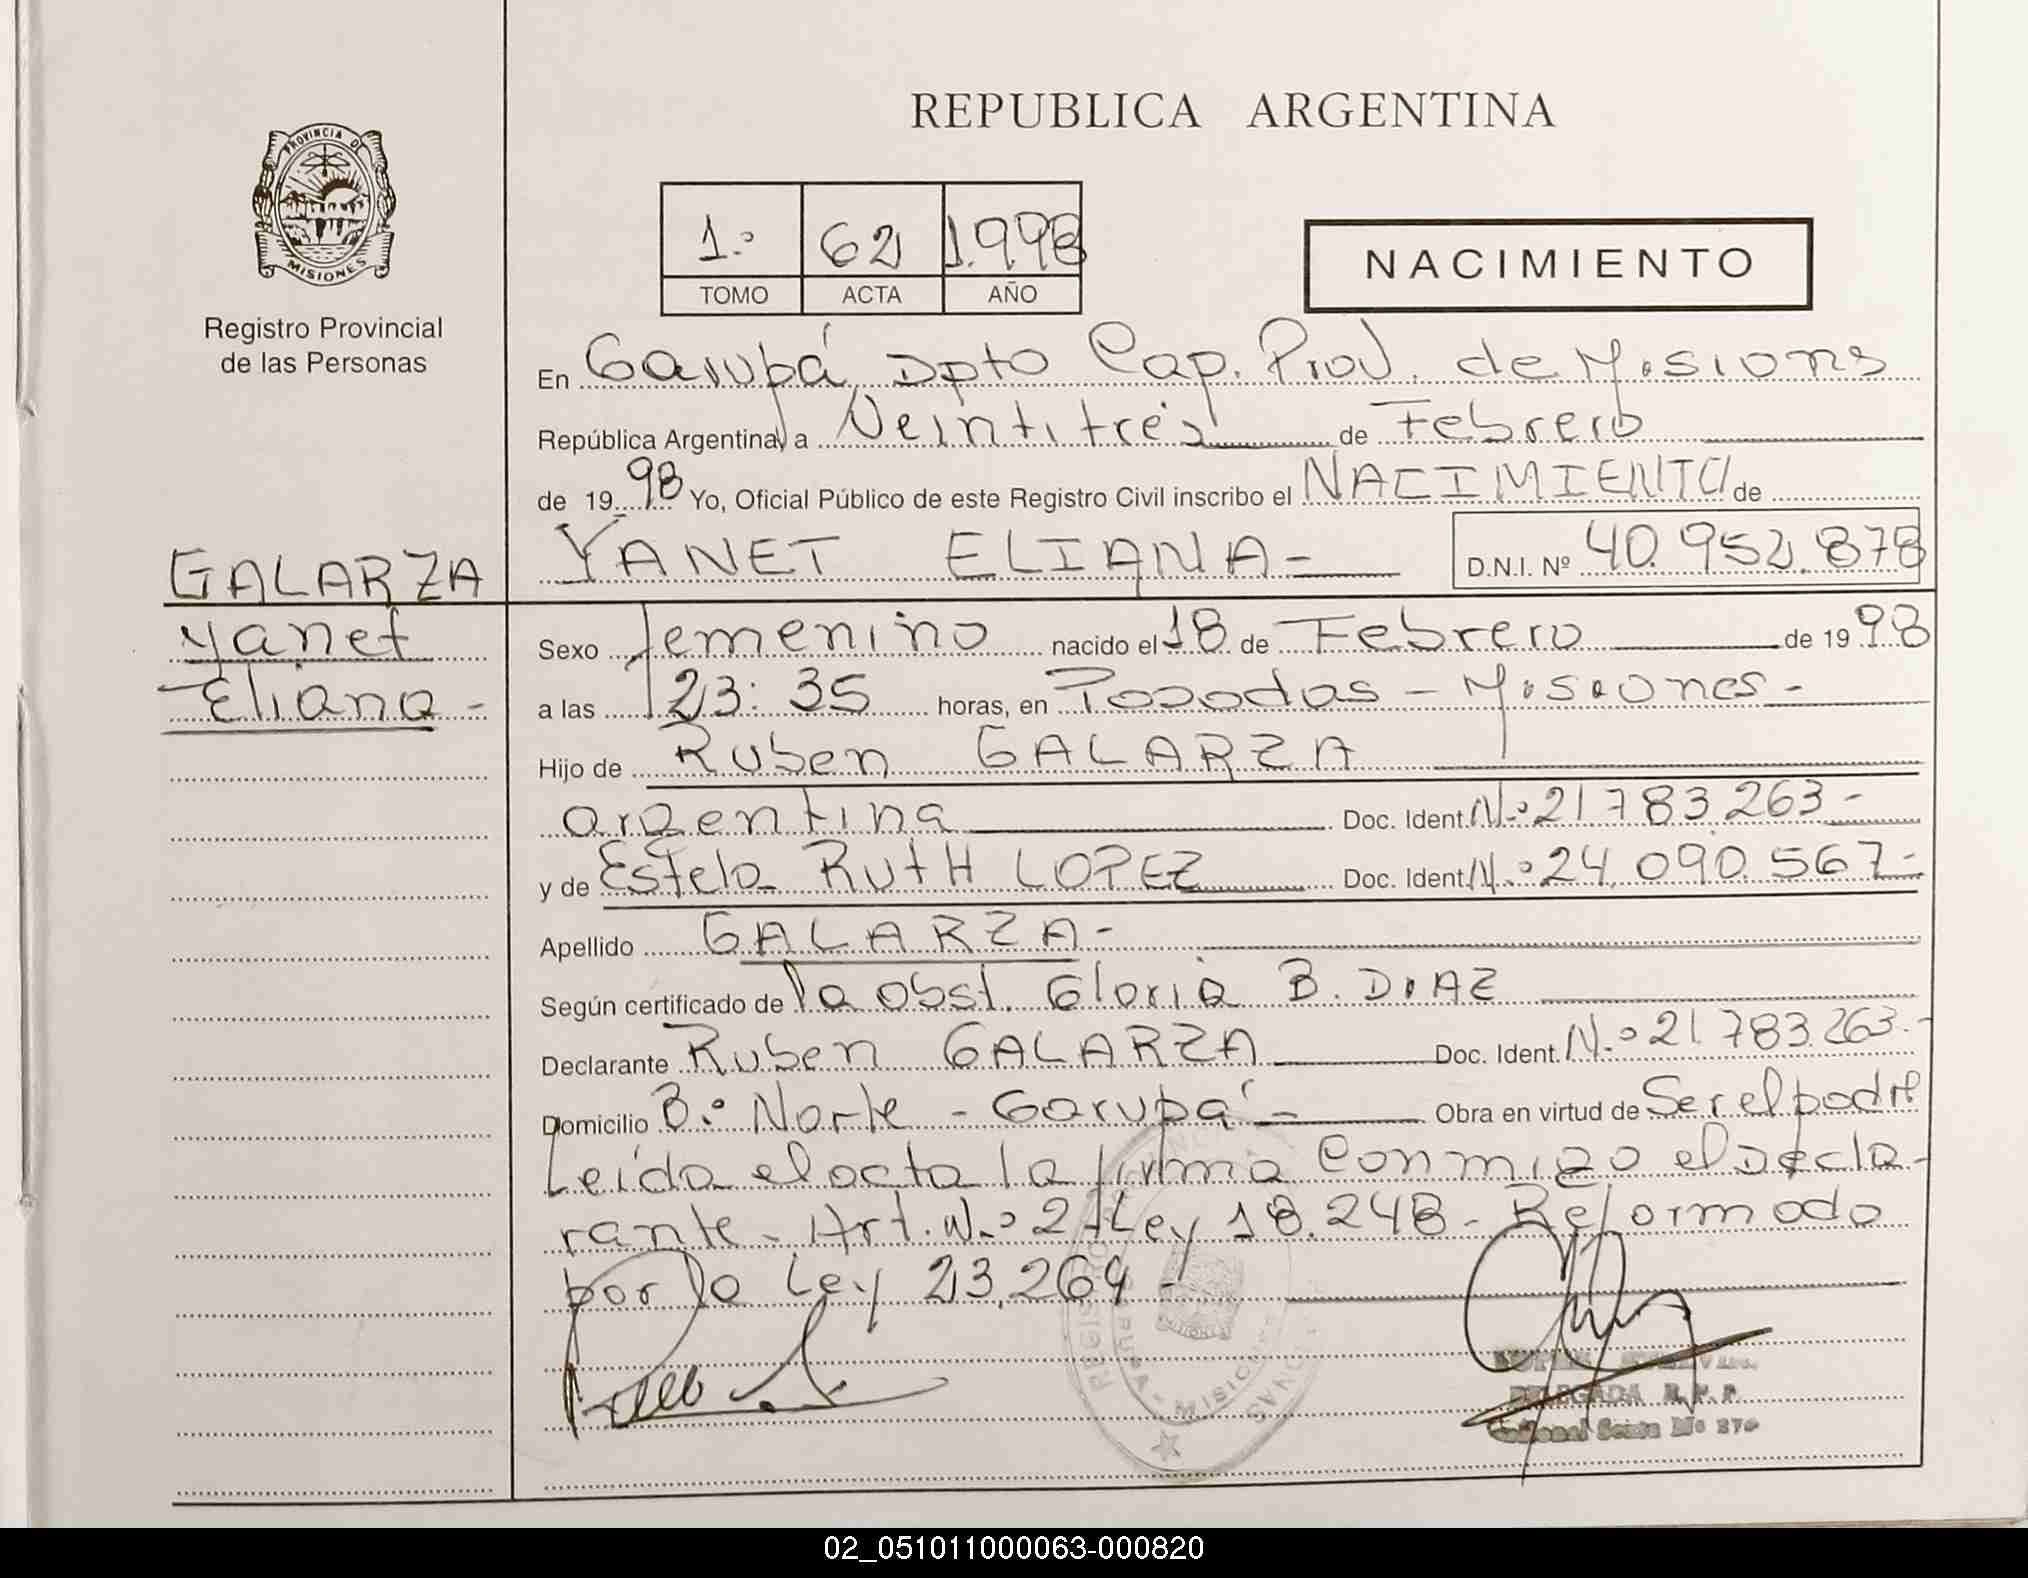 REPUBLICA ARGENTINA
PROVINCIA DE
MISIONES
Registro Provincial
de las Personas
1º 62 1.998
TOMO ACTA AÑO
NACIMIENTO
En Garupá, Dpto Cap. Prov. de Misions
República Argentina, a Veintitrés de Febrero
de 19 98 Yo, Oficial Público de este Registro Civil inscribo el NACIMIENTO de
YANET ELIANA- D.N.I. Nº 40.952.878
GALARZA
Yanet
Eliana-
Sexo femenino nacido el 18 de Febrero de 19 98
a las 23:35 horas, en Posadas - Misiones-
Hijo de Ruben GALARZA
argentina Doc. Ident. N.º 21 783.263-
y de Estela RUTH LOPEZ Doc. Ident. N.º 24.090.567-
Apellido GALARZA-
Según certificado de la obst. Gloria B. DIAZ
Declarante Ruben GALARZA Doc. Ident. N.º 21.783.263.-
Domicilio Bº Norte - Garupá- Obra en virtud de Ser el padre
Leída el acta la firma conmigo el Decla-
rante. Art. N.º 2 Ley 18.248. Reformado
por la Ley 23.264-
MISIONES
DELEGADA R. P. P.
02_051011000063-000820